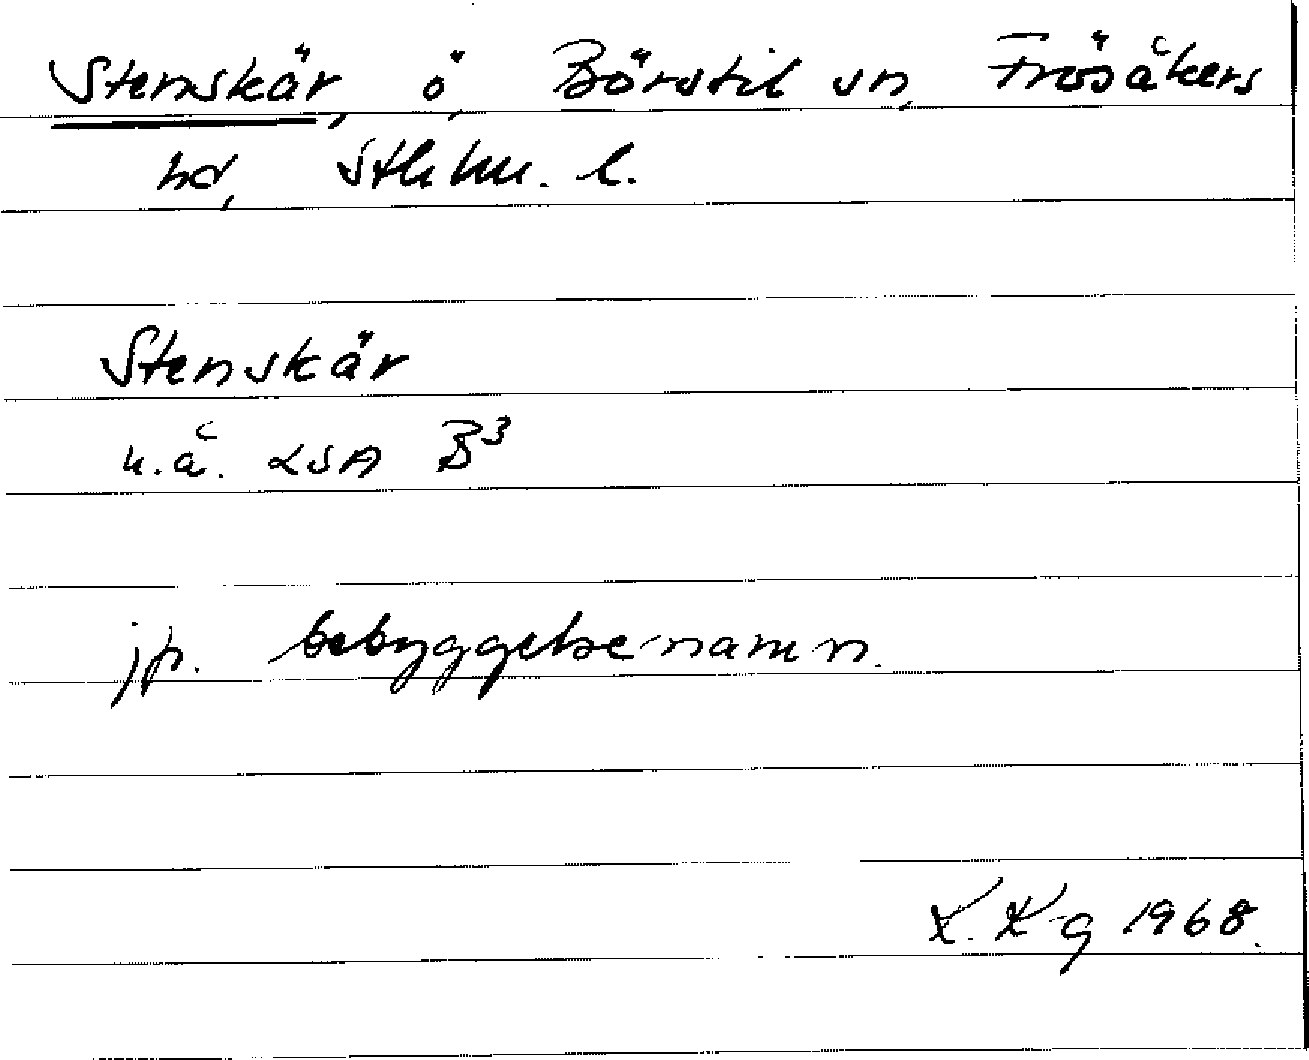 Stenskär, ö, Börstil sn, Frösåkers
hd, Sthlm. l.
Stenskär
u.å. LSA B³
jp. bebyggelsenamn.
K. K-g 1968.